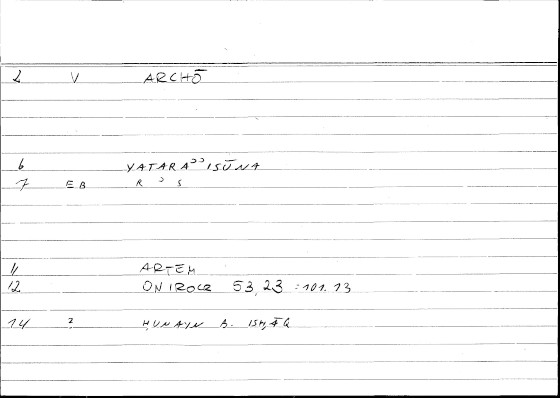 2 V ARCHŌ
6 YATARAʾʾISŪNA
7 EB R ʾ S
11 ARTEM
12 ONIROCR 53,23 : 101.13
14 ? ḤUNAYN B. ISḤĀQ